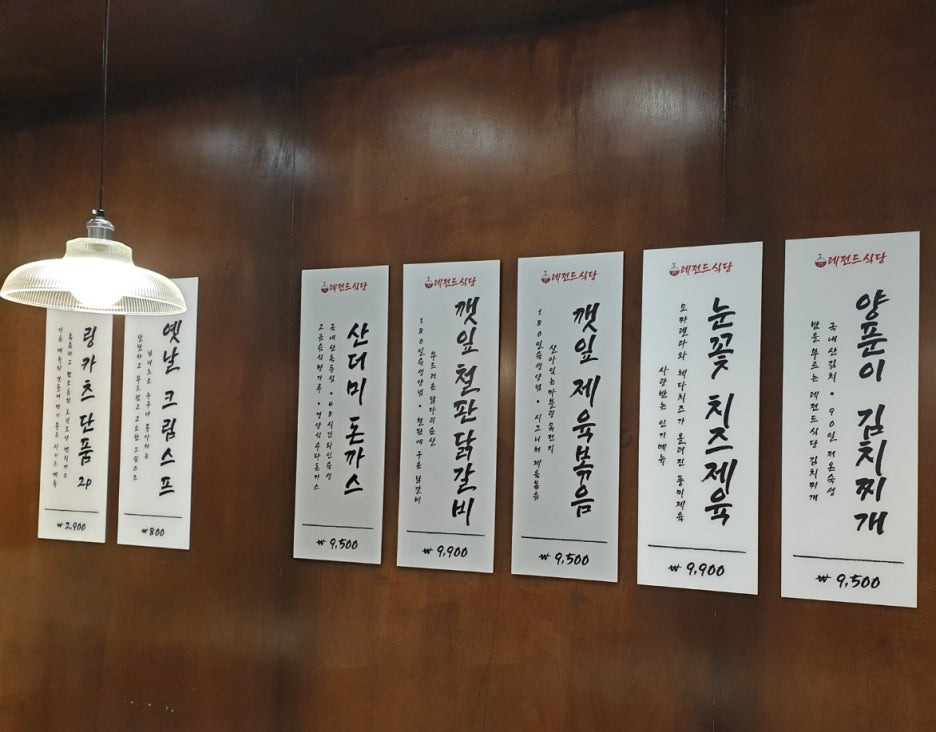 링카츠 단품 2p
₩ 2,900
옛날 크림스프
₩ 800
레전드식당
산더미 돈까스
₩ 9,500
레전드식당
깻잎 철판닭갈비
부드러운 닭다리순살
180일숙성양념 • 철판에 구운 닭갈비
₩ 9,900
레전드식당
깻잎 제육볶음
180일숙성양념 • 시그니처 제육볶음
₩ 9,500
레전드식당
눈꽃 치즈제육
모짜렐라와 체다치즈가 올려진 풍미제육
사랑받는 인기메뉴
₩ 9,900
레전드식당
양푼이 김치찌개
국내산김치 • 90일 저온숙성
밥을 부르는 레전드식당 김치찌개
₩ 9,500